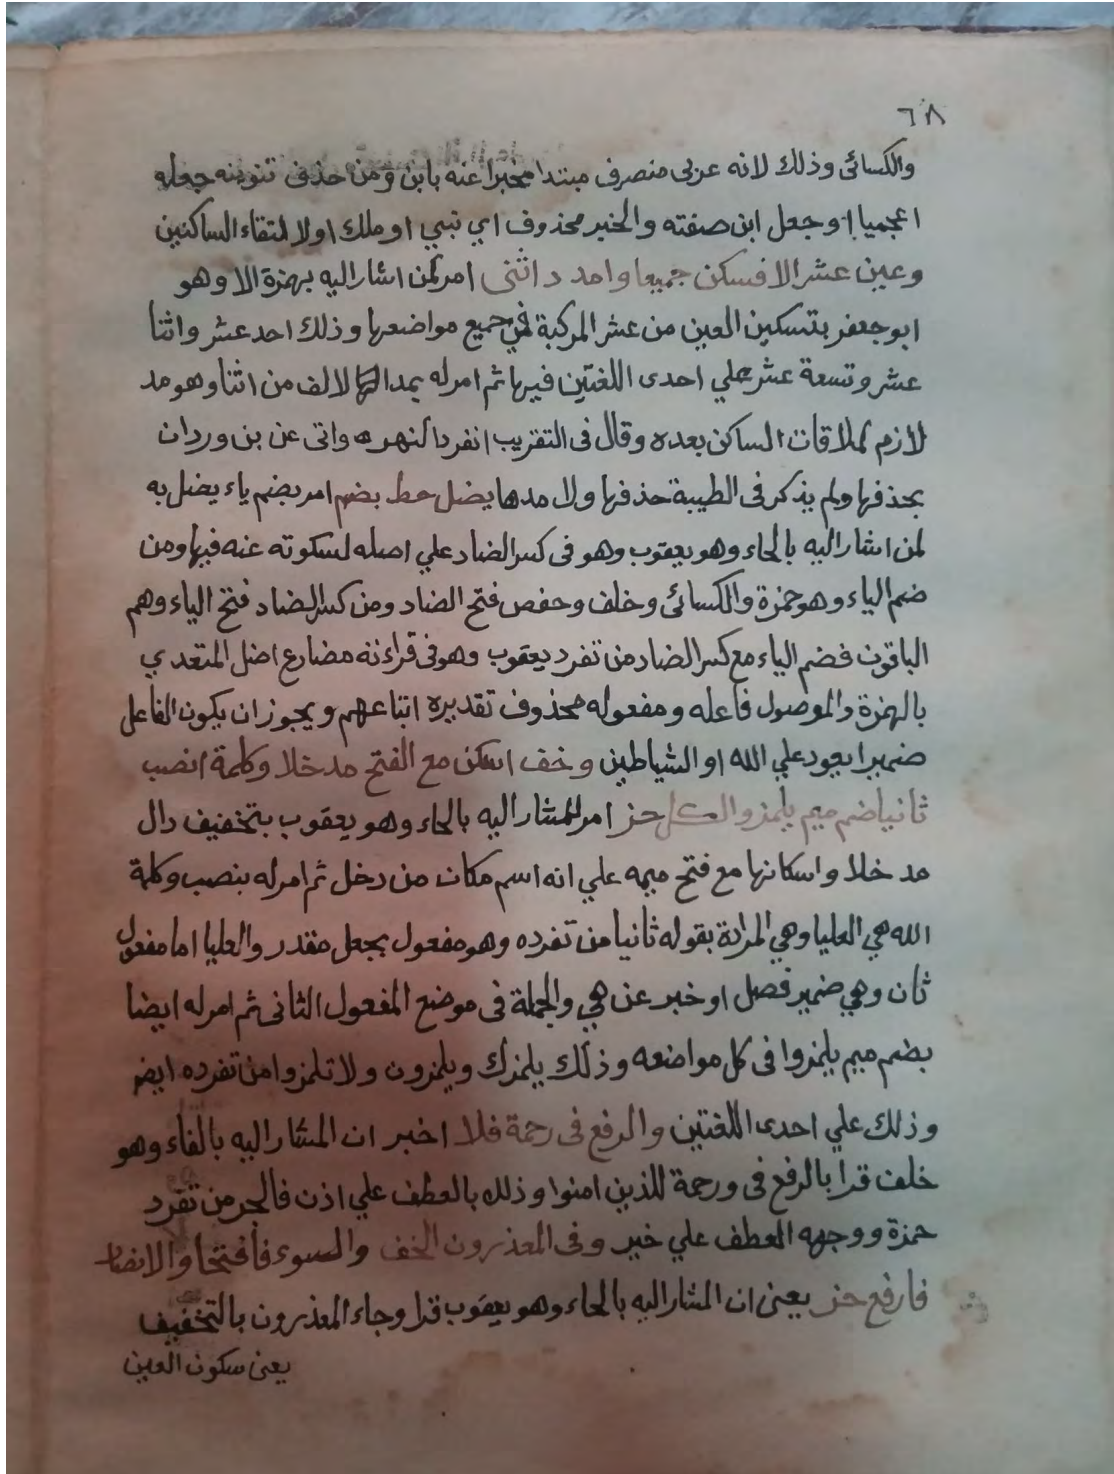 ٦٨
والكسائى وذلك لانه عربى منصرف مبتدا مخبرا عنه بابن ومن حذف تنوينه جعله
اعجميا او جعل ابن صفته والخبر محذوف اي نبي او ملك او لالتقاء الساكنين
وعين عشر الا فسكن جميعا وامدد اثنى امر لمن اشار اليه بهمزة الا وهو
ابو جعفر بتسكين العين من عشر المركبة في جميع مواضعها وذلك احد عشر واثنا
عشر وتسعة عشر علي احدى اللغتين فيها ثم امر له بمد الالف من اثنا وهو مد
لازم لملاقات الساكن بعده وقال فى التقريب انفرد النهروانى عن بن وردان
بحذفها ولم يذكر فى الطيبة حذفها ولا مدها يضل حط بضم امر بضم ياء يضل به
لمن اشار اليه بالحاء وهو يعقوب وهو فى كسر الضاد علي اصله لسكوته عنه فيها ومن
ضم الياء وهو حمزة والكسائى وخلف وحفص فتح الضاد ومن كسر الضاد فتح الياء وهم
الباقون فضم الياء مع كسر الضاد من تفرد يعقوب وهو فى قراءته مضارع اضل المتعدي
بالهمزة والموصول فاعله ومفعوله محذوف تقديره اتباعهم ويجوز ان يكون الفاعل
ضميرا يعود علي الله او الشياطين وخف اسكن مع الفتح مدخلا وكلمة انصب
ثانيا ضم ميم يلمز والكل حز امر للمشار اليه بالحاء وهو يعقوب بتخفيف دال
مدخلا واسكانها مع فتح ميمه علي انه اسم مكان من دخل ثم امر له بنصب وكلمة
الله هي العليا وهي المرادة بقوله ثانيا من تفرده وهو مفعول بجعل مقدر والعليا اما مفعول
ثان وهي ضمير فصل او خبر عن هي والجملة فى موضع المفعول الثانى ثم امر له ايضا
بضم ميم يلمزوا فى كل مواضعه وذلك يلمزك ويلمزون ولا تلمزوا من تفرده ايضا
وذلك علي احدى اللغتين والرفع فى رحمة فلا اخبر ان المشار اليه بالفاء وهو
خلف قرا بالرفع فى ورحمة للذين امنوا وذلك بالعطف علي اذن فالجر من تفرد
حمزة ووجهه العطف علي خير وفى المعذرون الخف والسوء فافتحا والانصار
فارفع حز يعنى ان المشار اليه بالحاء وهو يعقوب قرا وجاء المعذرون بالتخفيف
يعنى سكون العين